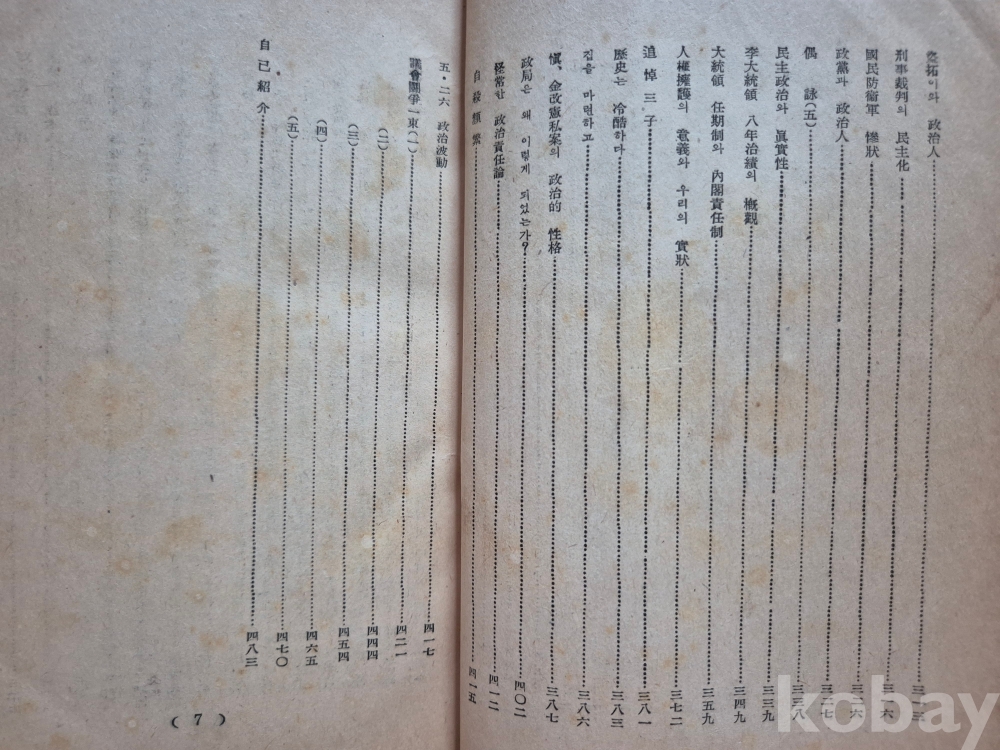 政治人
刑事裁判의 民主化 三一六
國民防衛軍 慘狀 三二六
政黨과 政治人 三二七
偶詠(五) 三三八
民主政治와 眞實性 三三九
李大統領 八年治績의 槪觀 三四九
大統領 任期制와 內閣責任制 三五九
人權擁護의 意義와 우리의 實狀 三七二
追悼三子 三八一
歷史는 冷酷하다 三八三
집을 마련하고 三八六
愼、金改憲私案의 政治的 性格 三八七
政局은 왜 이렇게 되었는가? 四〇二
怪常한 政治責任論 四一二
自殺頻繁 四一五
五・二六 政治波動 四一七
議會鬪爭一束(一) 四二一
(二) 四四四
(三) 四五四
(四) 四六五
(五) 四七〇
自己紹介 四八三
( 7 )
kobay